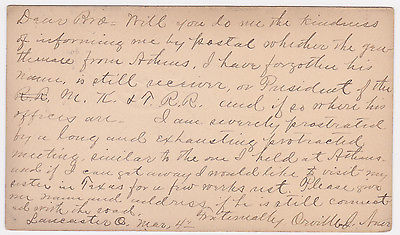 Dear Bro- Will you do me the kindness
of informing me by postal whether the gen-
tleman from Athens, I have forgotten his
name, is still receiver, or President of the
R.R, M. K. & T R.R. and if so where his
offices are- I am severely prostrated
by a long and exhausting protracted
meeting similar to the one I held at Athens
and if I can get away I would like to visit my
sister in Texas for a few weeks rest. Please give
me name and address if he is still connect
ed with the road. Fraternally Orville J.
Lancaster O. Mar, 4-